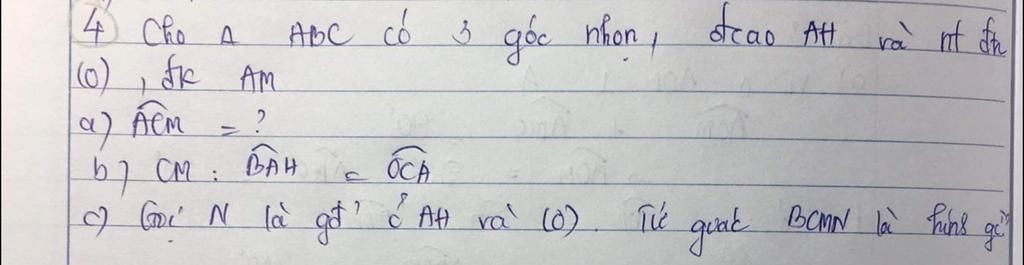 4 Cho Δ ABC có 3 góc nhọn, đcao AH và nt đtr
(O), đk AM
a) ACM = ?
b) CM : BAH = OCA
c) Gọi N là gđ ở AH và (O). Tứ giác BCMN là hình gì